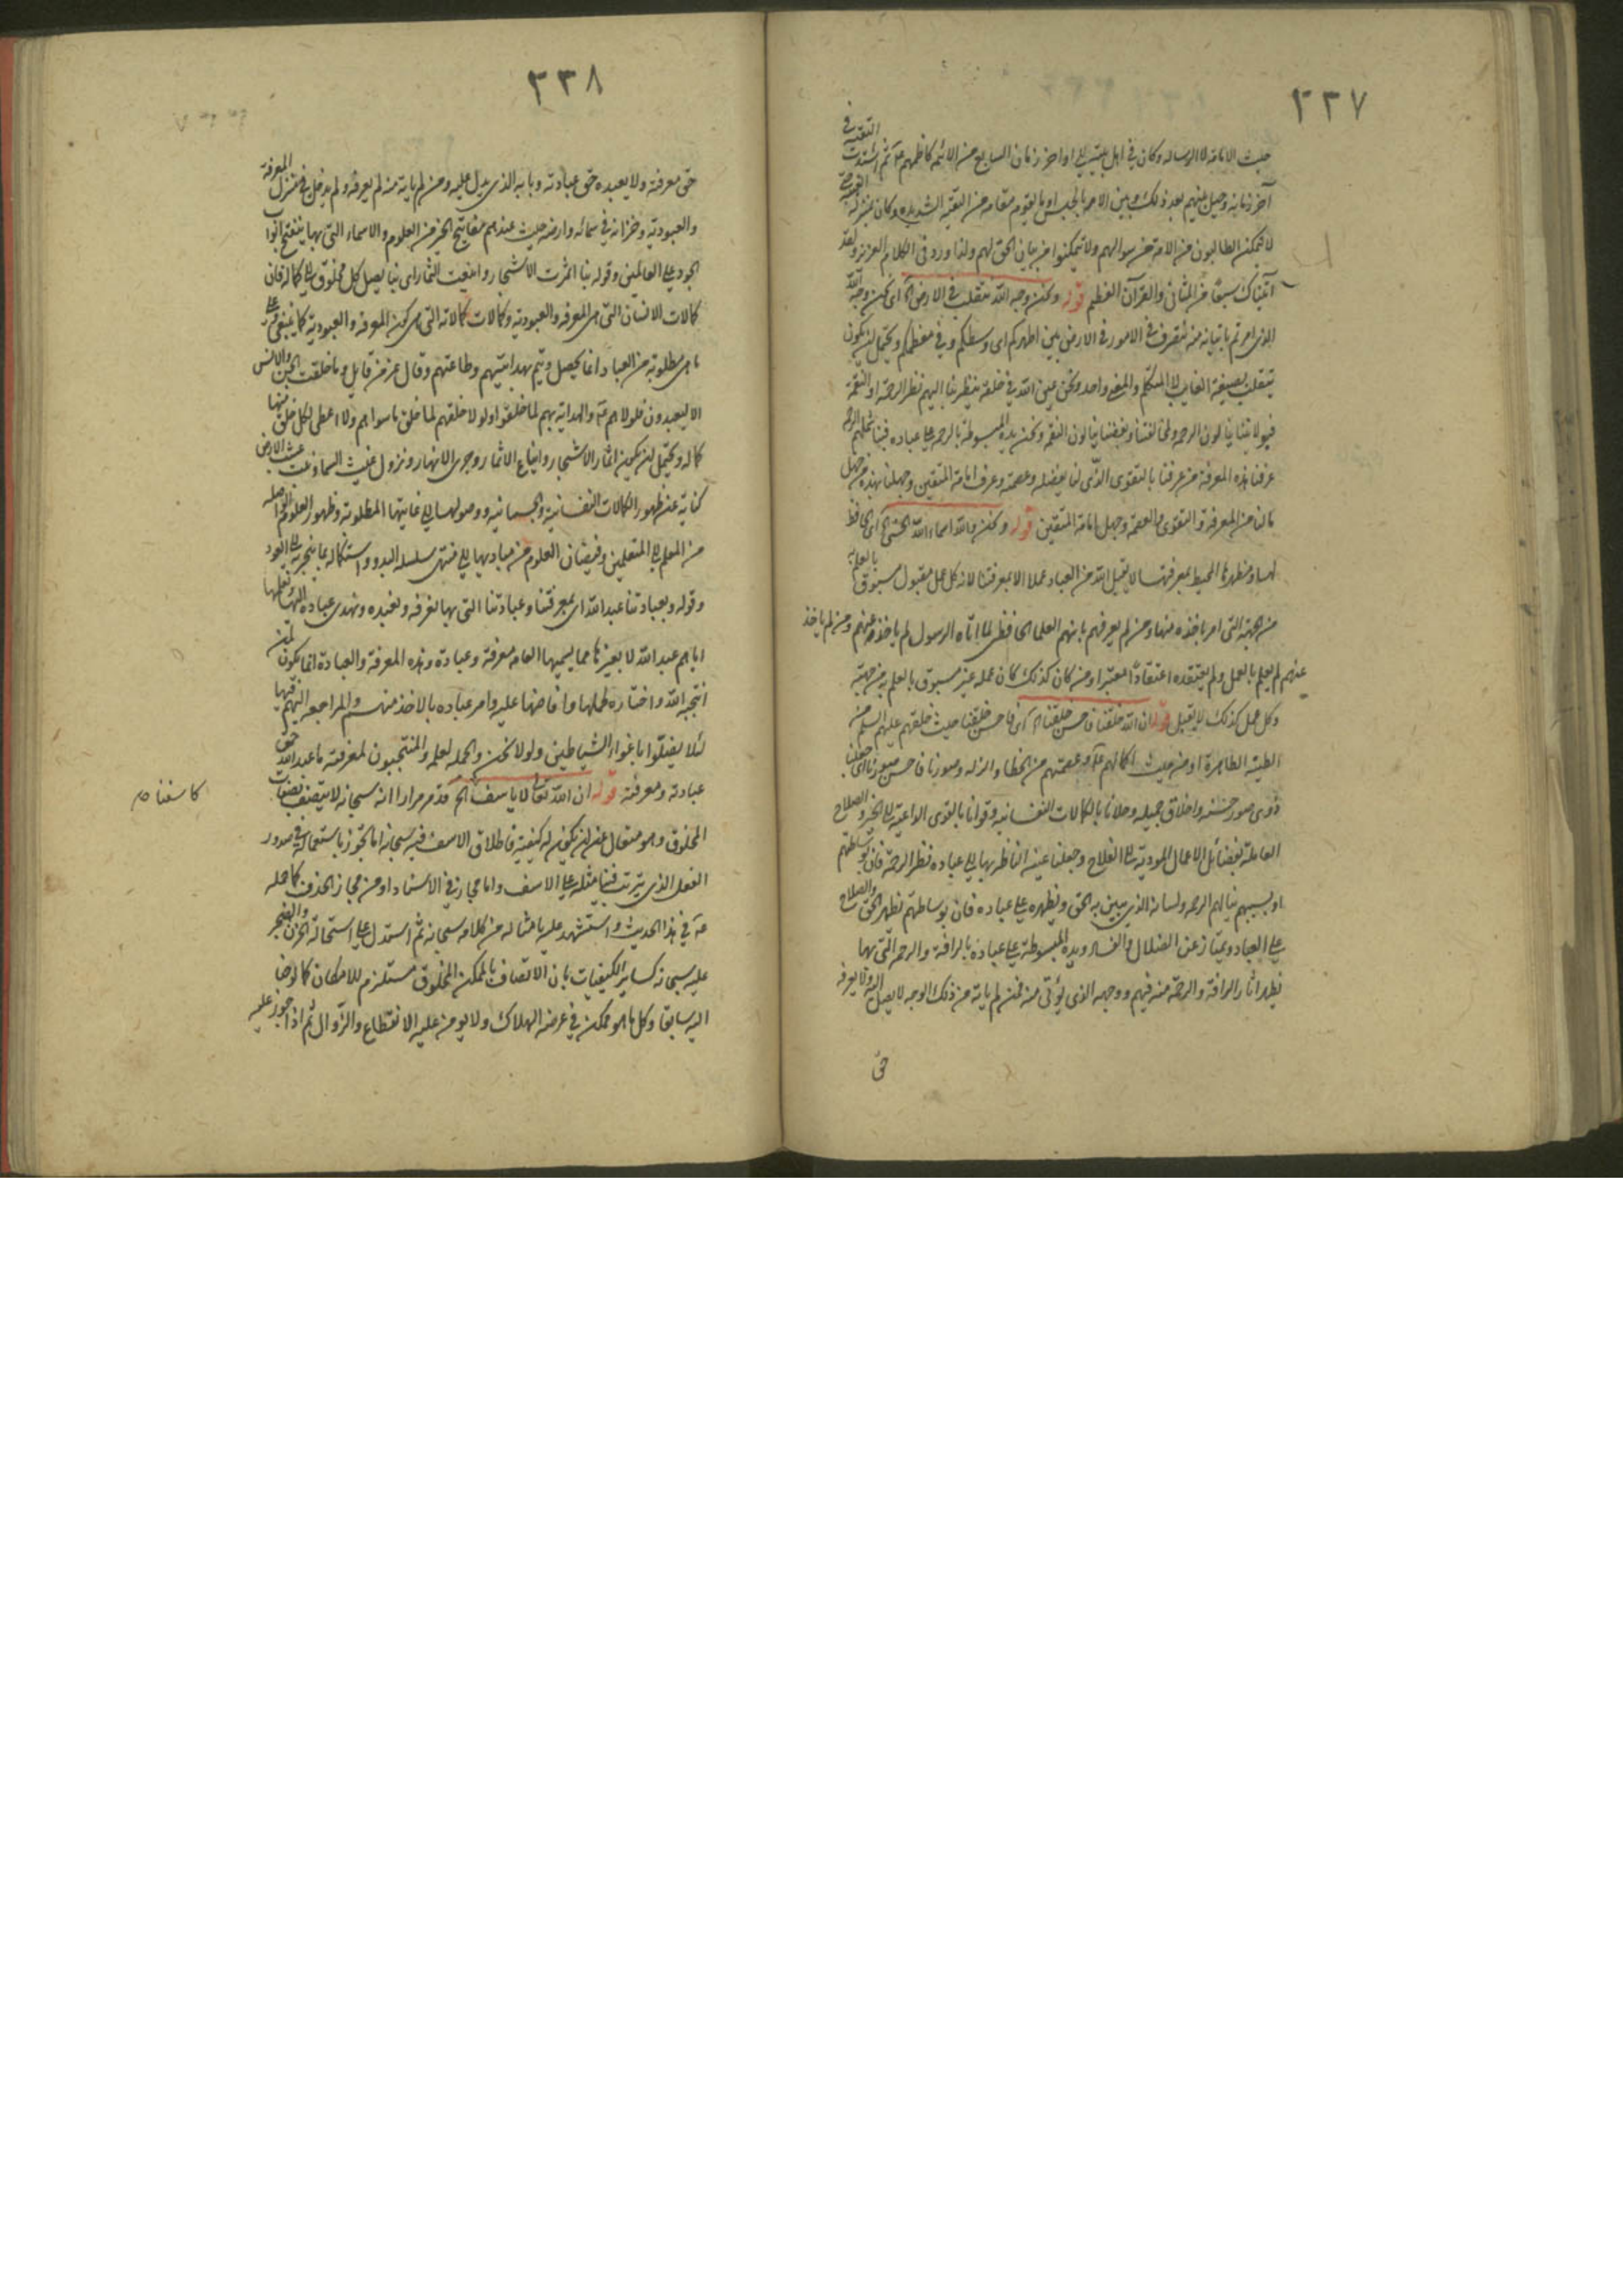 ٢٣٧
حيث الامامة لا الرساله وكان في اهل بيته الى اواخر زمان السابع من الائمه كاظمهم ع ثم اشتدت التقية في
آخر زمانه وحيل بينهم بعد ذلك وبين الامر بالحبس او بما يقوم مقامه من التقية الشديده وكان بمنزلة
لا يمكن الطالبون من الامة من سؤالهم ولا يتمكنوا من بيان الحق لهم ولذا ورد في الكلام العزيز ولقد
آتيناك سبعا من المثاني والقرآن العظيم قوله ونحن وجه الله نتقلب في الارض الخ اى نحن وجه الله
الذى امرتم باتيانه منه نتصرف في الامور في الارض بين اظهركم اى وسطكم وفي معظمكم ويحتمل ان يكون
يتقلب بصيغة الغايب لا المتكلم والمعنى واحد ونحن عين الله في خلقه ينظر بنا اليهم نظر الرحمة او النقمة
فبولايتنا ينالون الرحمه ولمخالفتنا وبغضنا ينالون النقم ونحن يده المبسوطة بالرحمه على عباده فبنا شملهم الرحمة
عرفنا بهذه المعرفة من عرفنا بالتقوى الذى لنا بفضله وعصمته وعرف امامة المتقين وجهلنا بهذه من جهل
مالنا من المعرفة والتقوى والعصمة وجهل امامة المتقين قوله ونحن والله اسماء الله الحسنى الخ اى الحافظ
لها ومظهرها المحيط بمعرفتها لا يقبل الله من العباد عملا الا بمعرفتنا لان كل عمل مقبول مسبوق بالعلم به
من الجهة التى امر باخذه منها ومن لم يعرفهم بانهم العلماء الحافظين لما اتاه الرسول لم ياخذه منهم ومن لم ياخذ
عنهم لم يعلم بالعمل ولم يعتقده اعتقادا معتبرا ومن كان كذلك كان عمله غير مسبوق بالعلم به من جهته
وكل عمل كذلك لا يقبل قوله ان الله خلقنا فاحسن خلقنا الخ اى فاحسن خلقنا حيث خلقهم عليهم السلم من
الطينة الطاهرة او من حيث اكمالهم وعصمتهم من الخطاء والزله وصورنا فاحسن صورنا اى جعلنا
ذوى صور حسنه واخلاق جميله وحلانا بالكمالات النفسانيه وقوانا بالقوى الداعية الى الخير والصلاح
العاملة بفضائل الاعمال المودية الى الفلاح وجعلنا عينه الناظر بها الى عباده نظر الرحمة فان بوساطتهم
او بسببهم ينالهم الرحمه ولسانه الذى يبين به الحق ويظهره على عباده فان بوساطتهم تظهر الحق والصلاح
على العباد ويمتاز عن الضلال والفساد ويده المبسوطة على عباده بالرافة والرحمه التى بها
تظهر اثار الرافة والرحمة منه فيهم ووجهه الذى يؤتى منه فمن لم ياته من ذلك الوجه لا يصل اليه ولا يعرفه
حق
٢٣٨
حق معرفته ولا يعبده حق عبادته وبابه الذى يدل عليه ومن لم ياته منه لم يعرفه ولم يدخل في منزل المعرفة
والعبودية وخزانه في سمائه وارضه حيث عندهم مفاتيح الخير من العلوم والاسماء التى بها ينفتح ابواب
الجود على العالمين وقوله بنا اثمرت الاشجار واينعت الثمار اى بنا يصل كل مخلوق الى كماله فان
كمالات الانسان التى هى المعرفه والعبوديه وكمالات كمالاته التى هى كون المعرفة والعبودية كما ينبغى على
ما هى مطلوبة من العباد انما يحصل ويتم بهدايتهم وطاعتهم وقال عز من قايل وما خلقت الجن والانس
الا ليعبدون فلولاهم ع والهداية بهم لما خلقوا ولولا خلقهم لما خلق ما سواهم ولا اعطى لكل خلق منها
كماله ويحتمل ان يكون اثمار الاشجار وايناع الاثمار وجرى الانهار ونزول غيث السماء ونبت عشب الارض
كناية عن ظهور الكمالات النفسانية والجسمانيه ووصولها الى غاياتها المطلوبة وظهور العلوم الواصله
من المعلم الى المتعلمين وفيضان العلوم من مباديها الى منتهى سلسله البدو واستكماله بما ينجر به الى العود
وقوله وبعبادتنا عبد الله اى بمعرفتنا وعبادتنا التى بها نعرفه ونعبده ونهدى عباده اليها ونعلمها
اياهم عبد الله لا بغيرها مما يسميها العامه معرفة وعبادة وهذه المعرفة والعبادة انما يكون لمن
انتجبه الله واختاره لحملها وافاضها عليه وامر عباده بالاخذ منهم والمراجعه اليهم فيها
لئلا يضلوا باغواء الشياطين ولولا نحن والحمله لعلمه والمنتجبون لمعرفته ما عبد الله حق
عبادته ومعرفته قوله ان الله تعالى لا ياسف الخ قد مر مرارا انه سبحانه لا يتصف بصفات
المخلوق وهو متعال عن ان يكون له كيفية فاطلاق الاسف فيه سبحانه اما تجوز باستعماله في صدور
الفعل الذى يترتب فينا مثله على الاسف واما مجاز في الاسناد او من مجاز الحذف كما حمله
ع في هذا الحديث واستشهد عليه بامثاله من كلامه سبحانه ثم استدل على استحالة الحزن والضجر
عليه سبحانه كساير الكيفيات بان الاتصاف بالممكن المخلوق مستلزم للامكان كما لوحنا
اليه سابقا وكل ما هو ممكن في عرضه الهلاك ولا يومن عليه الانقطاع والزوال ثم اذا جوز عليه
كاسفنا م